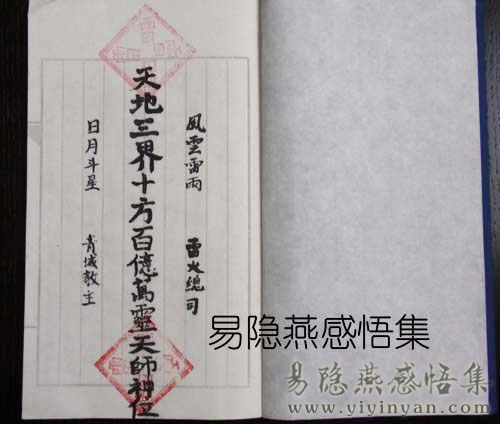 風雲雷雨 雷火總司
天地三界十方百億萬靈天師神位
日月斗星 青城教主
易隐燕感悟集
易隐燕感悟集
www.yiyinyan.com